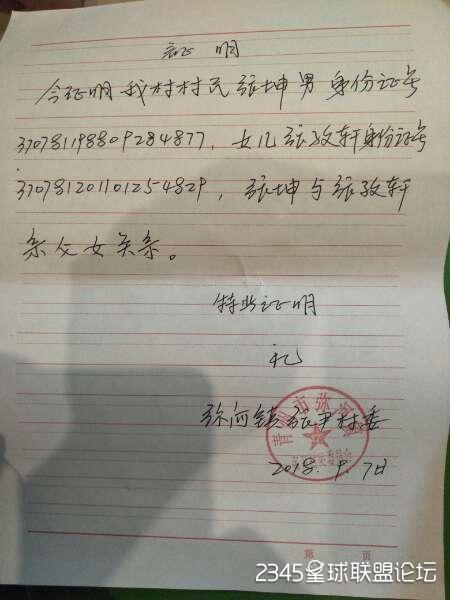 证 明
今证明我村村民张坤男身份证号
370781198809284877，女儿张孜轩身份证号
370781201101254829，张坤与张孜轩
系父女关系。
特此证明
礼
弥河镇张尹村委
青州市弥河镇
2018.9.7日
第 页
2345星球联盟论坛